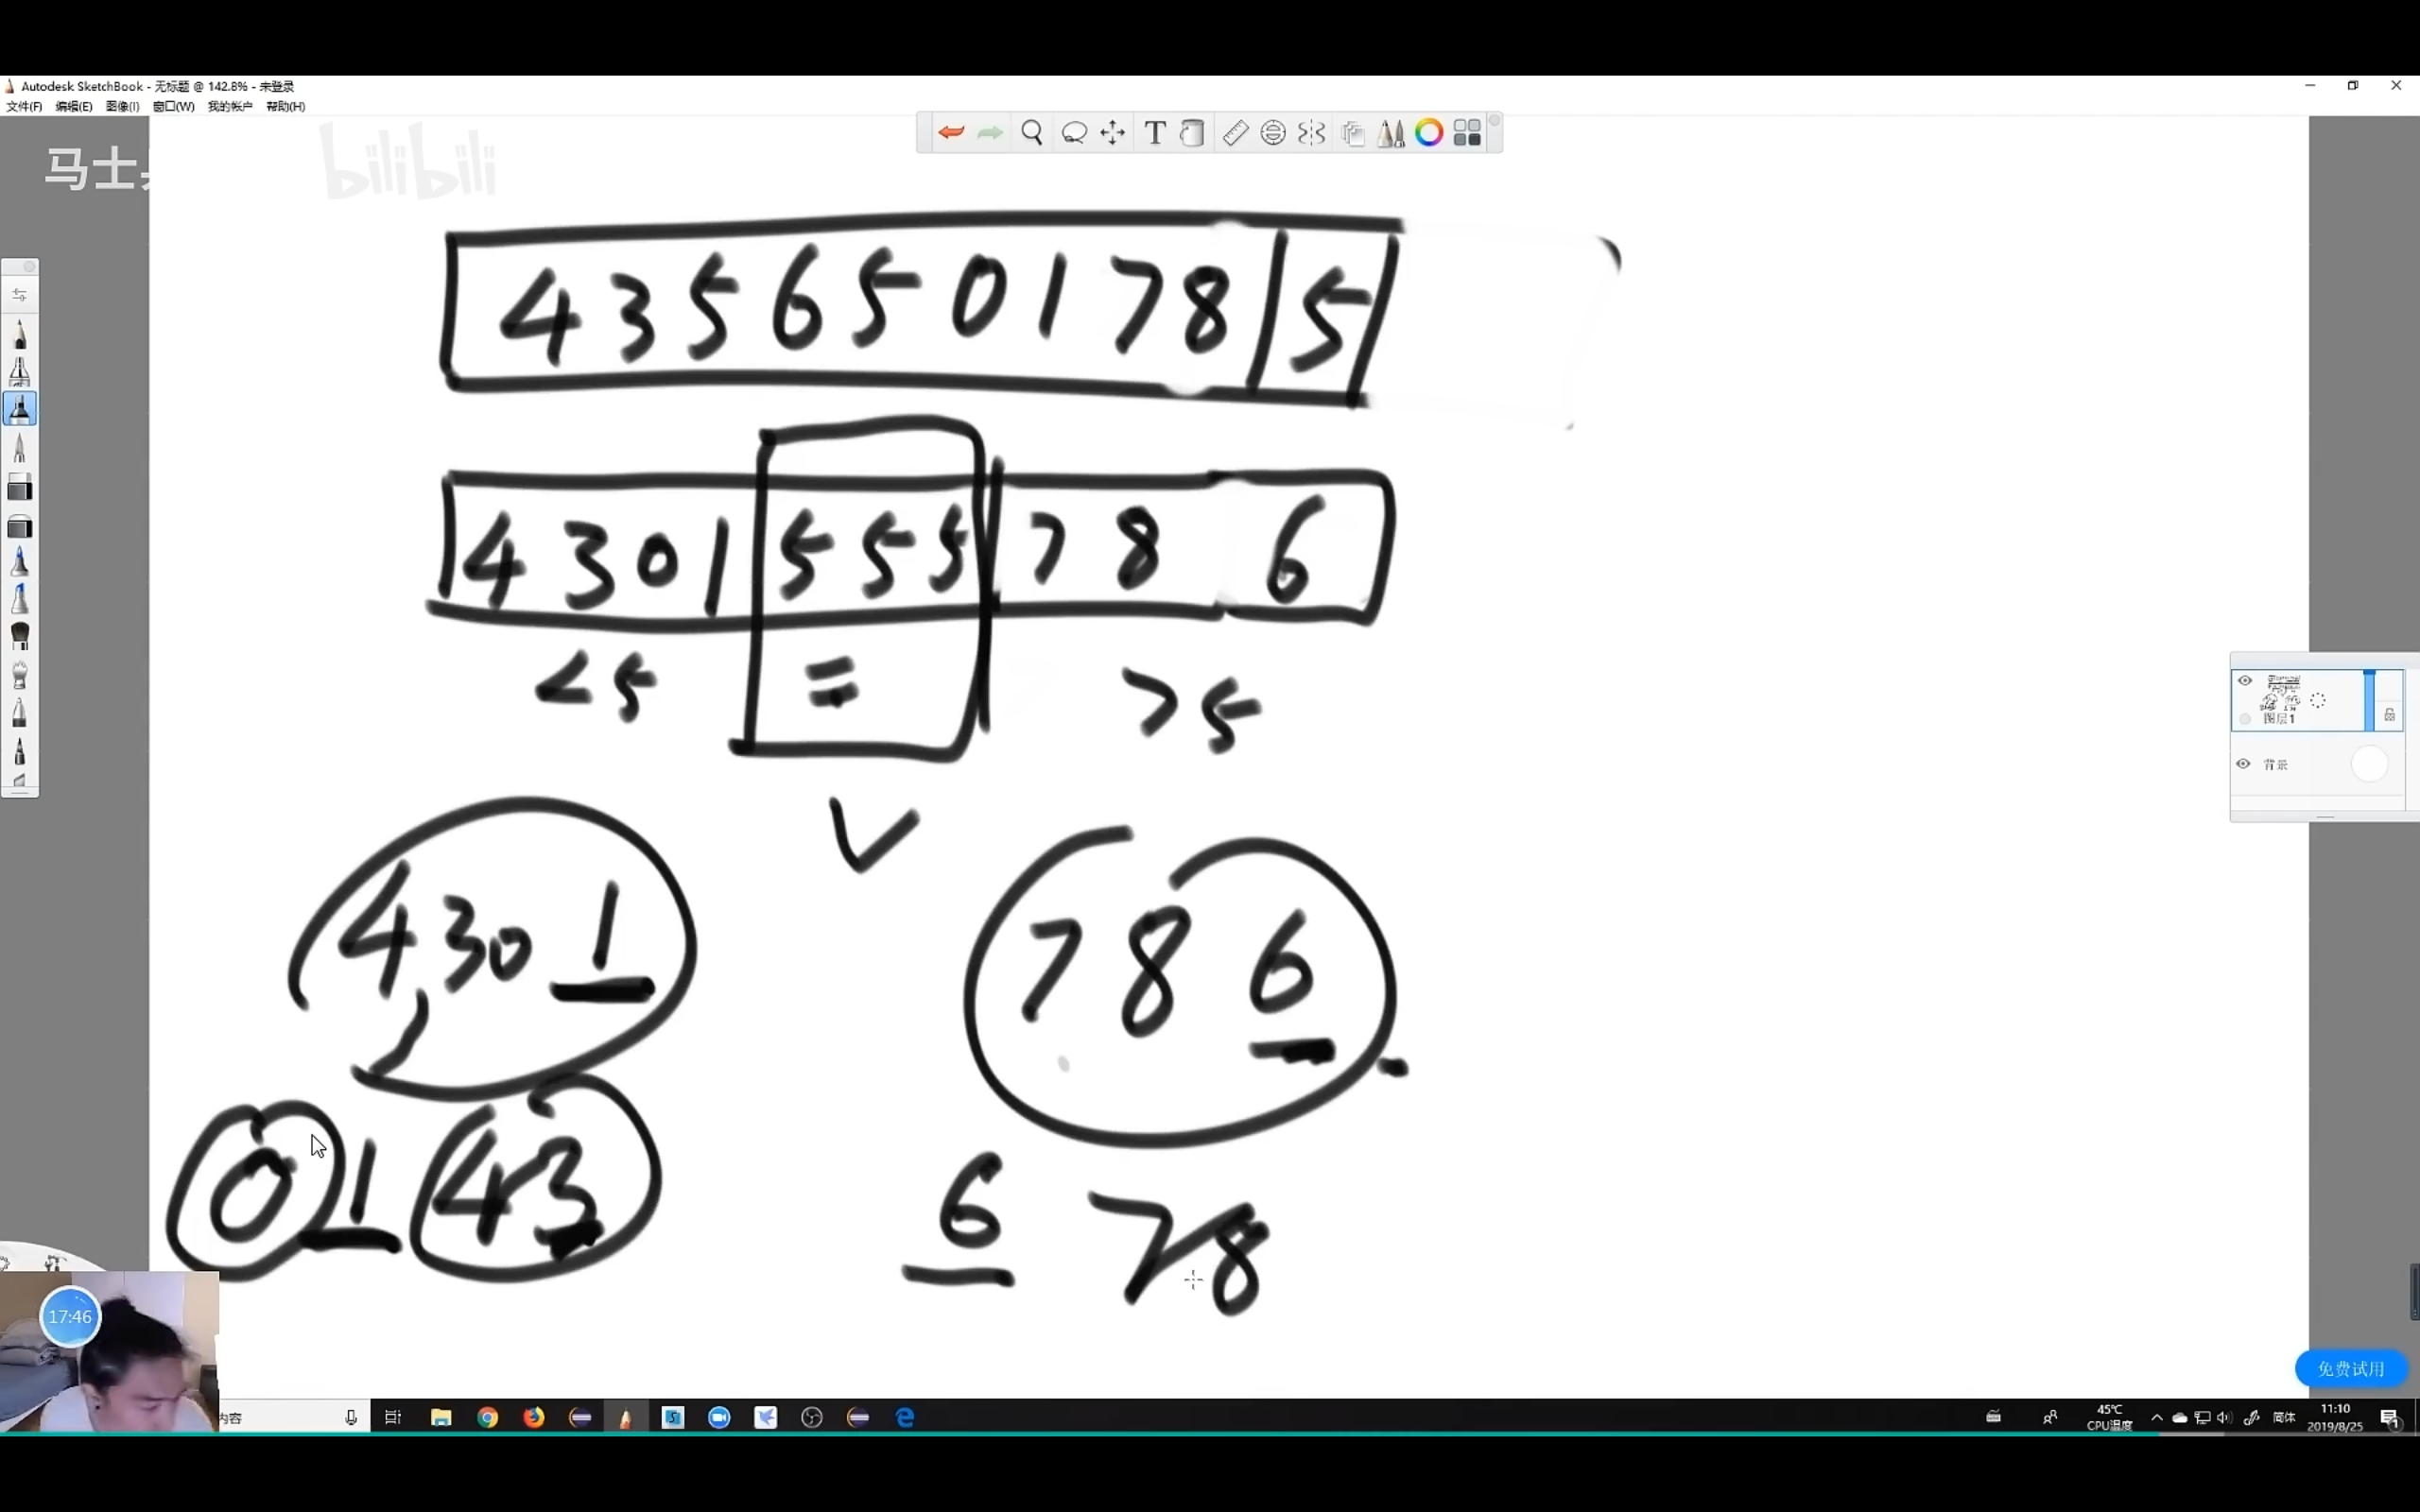 Autodesk SketchBook - 无标题 @ 142.8% - 未登录
文件(F) 编辑(E) 图像(I) 窗口(W) 我的帐户 帮助(H)
马士
bilibili
4 3 5 6 5 0 1 7 8 5
4 3 0 1 5 5 5 7 8 6
<5 = >5
图层1
背景
4 3 0 1 7 8 6
0 1 4 3 6 7 8
17:46
免费试用
内容
45℃
CPU温度
简体
11:10
2019/8/25
1